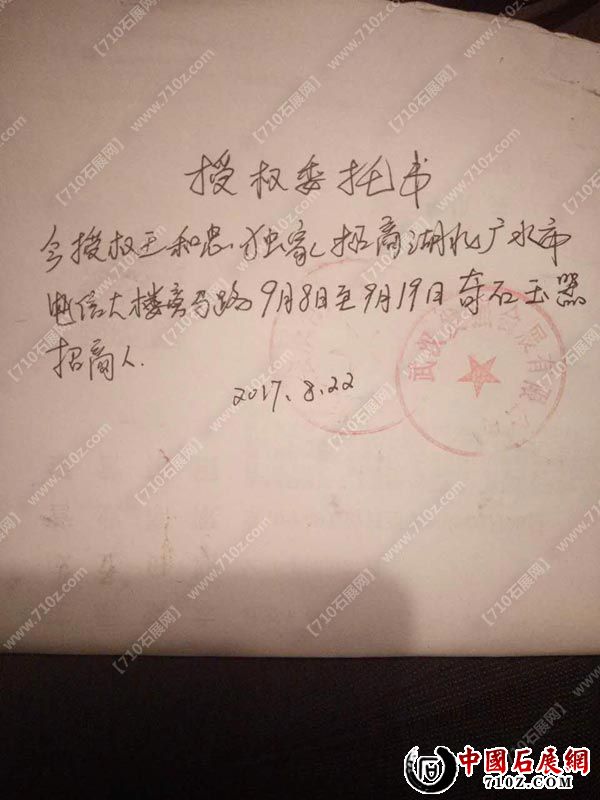 授权委托书
今授权王和忠独家招商湖北广水市
电信大楼旁马路9月8日至9月19日奇石玉器
招商人.
2017.8.22
武汉 会展有限
中國石展網
710Z.COM
【710石展网】 www.710z.com